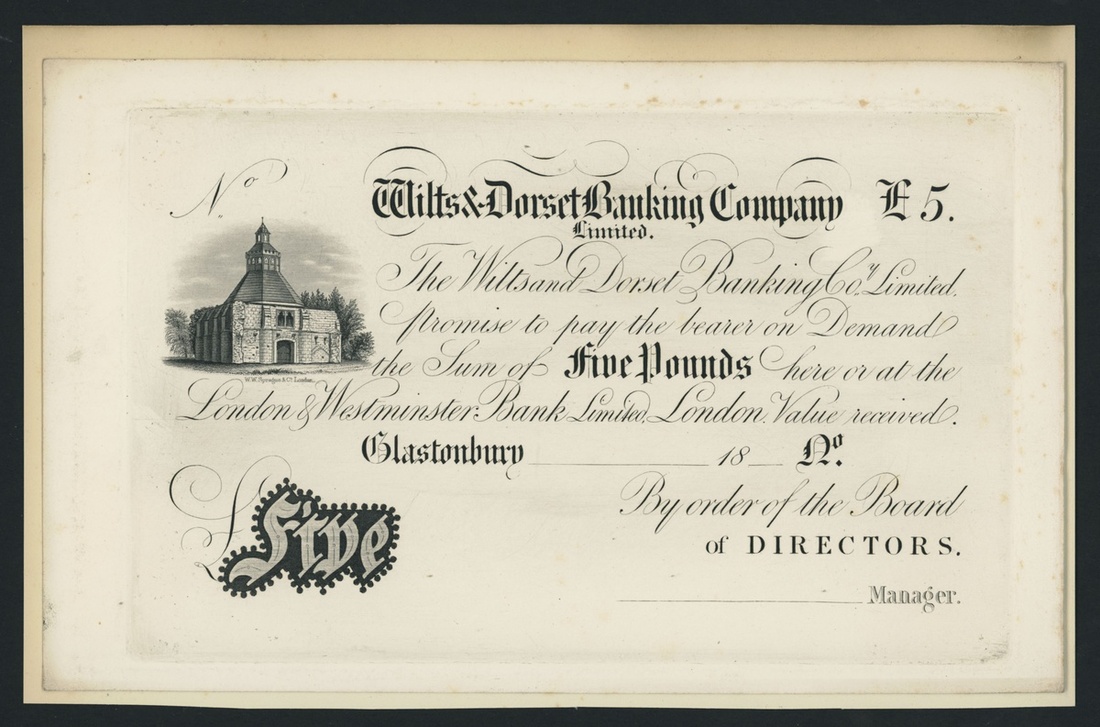 No
Wilts & Dorset Banking Company £5.
Limited.
The Wilts and Dorset Banking Coy. Limited,
promise to pay the bearer on Demand
the Sum of Five Pounds here or at the
W.W. Sprague & Co. London.
London & Westminster Bank Limited, London. Value received.
Glastonbury 18 No.
By order of the Board
£ Five
of DIRECTORS.
Manager.